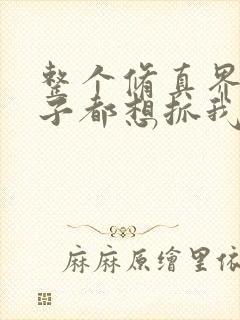 整个脩真界
子都想抓我
麻麻原繪里依